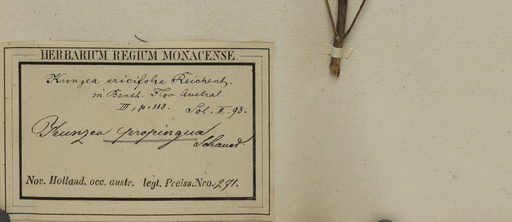 HERBARIUM REGIUM MONACENSE.
Kunzea ericifolia Reichenb.
in Benth. Flor. Austral.
III, p. 113. Sol. II. 93.
Kunzea propinqua
Schauer
Nov. Holland. occ. austr. legt. Preiss. Nro. 291.